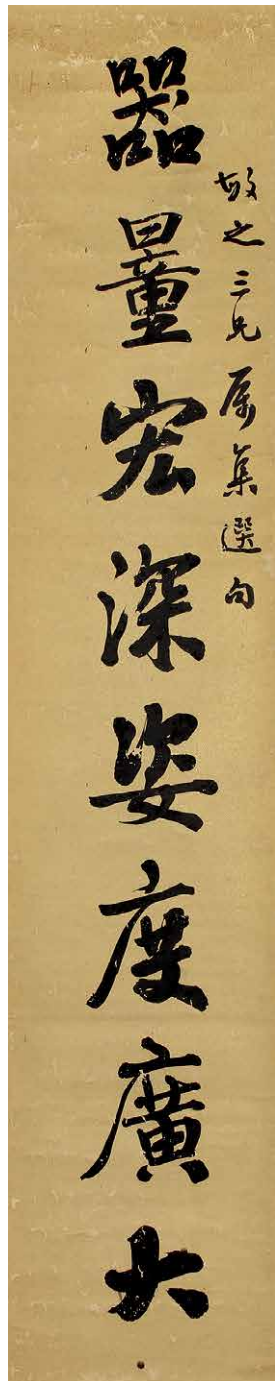 敬之三兄属集選句
器量宏深姿度廣大